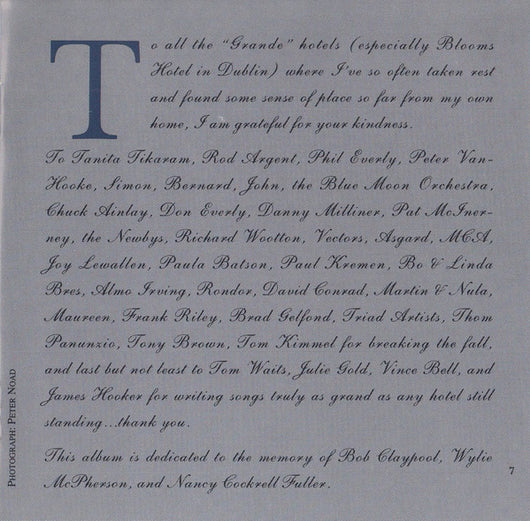 To all the "Grande" hotels (especially Blooms
Hotel in Dublin) where I've so often taken rest
and found some sense of place so far from my own
home, I am grateful for your kindness.
To Tanita Tikaram, Rod Argent, Phil Everly, Peter Van-
Hooke, Simon, Bernard, John, the Blue Moon Orchestra.
Chuck Ainlay, Don Everly, Danny Milliner, Pat McIner-
ney, the Newbys, Richard Wootton, Vectors, Asgard, MCA,
Joy Lewallen, Paula Batson, Paul Kremen, Bo & Linda
Bres, Almo Irving, Rondor, David Conrad, Martin & Nula,
Maureen, Frank Riley, Brad Gelfond, Triad Artists, Thom
Panunzio, Tony Brown, Tom Kimmel for breaking the fall,
and last but not least to Tom Waits, Julie Gold, Vince Bell, and
James Hooker for writing songs truly as grand as any hotel still
standing...thank you.
This album is dedicated to the memory of Bob Claypool, Wylie
McPherson, and Nancy Cockrell Fuller.
Photograph: Peter Noad
7